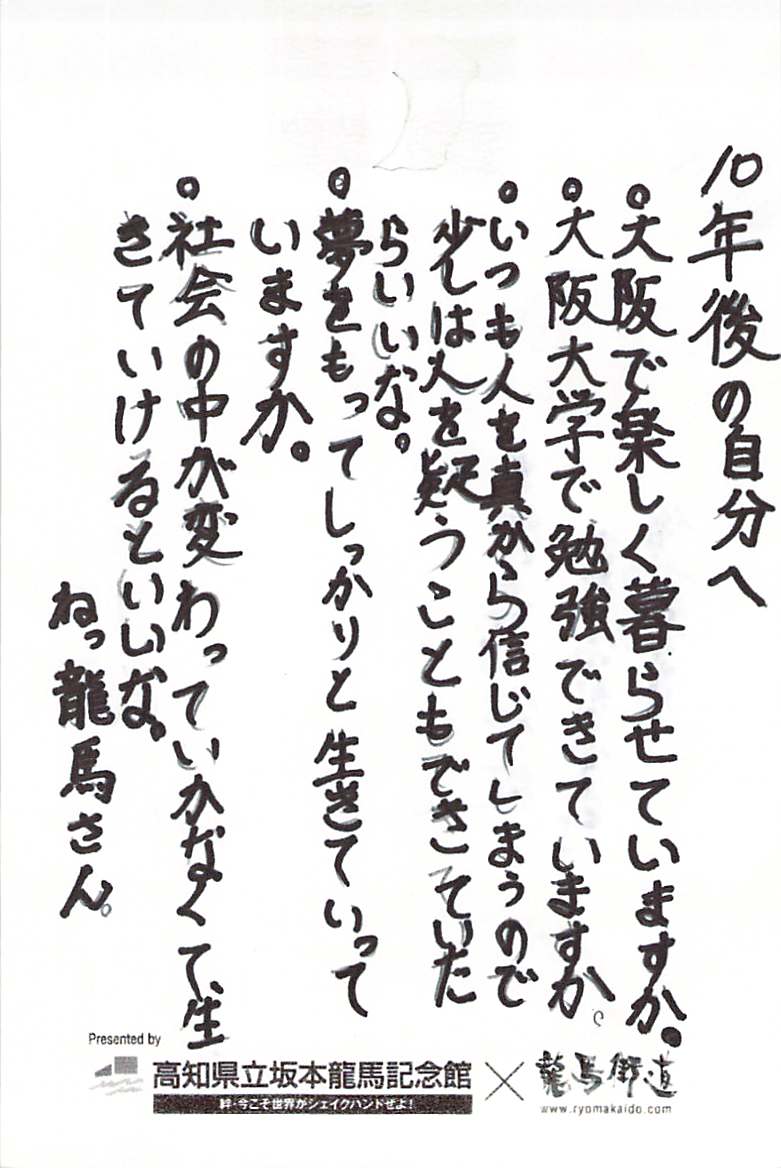 10年後の自分へ
○大阪で楽しく暮らせていますか。
○大阪大学で勉強できていますか。
○いつも人を真から信じてしまうので
少しは人を疑うこともできていた
らいいな。
○夢をもってしっかりと生きていって
いますか。
○社会の中が変わっていかなくて、生
きていけるといいな。
ねっ龍馬さん。
Presented by
高知県立坂本龍馬記念館×龍馬街道
絆・今こそ世界がシェイクハンドせよ!
www.ryomakaido.com